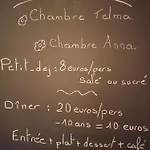 Chambre Telma
Chambre Anna
Petit_dej: 8 euros/pers
salé ou sucré
Dîner : 20 euros/pers
-10 ans = 10 euros
Entrée + plat + dessert + café